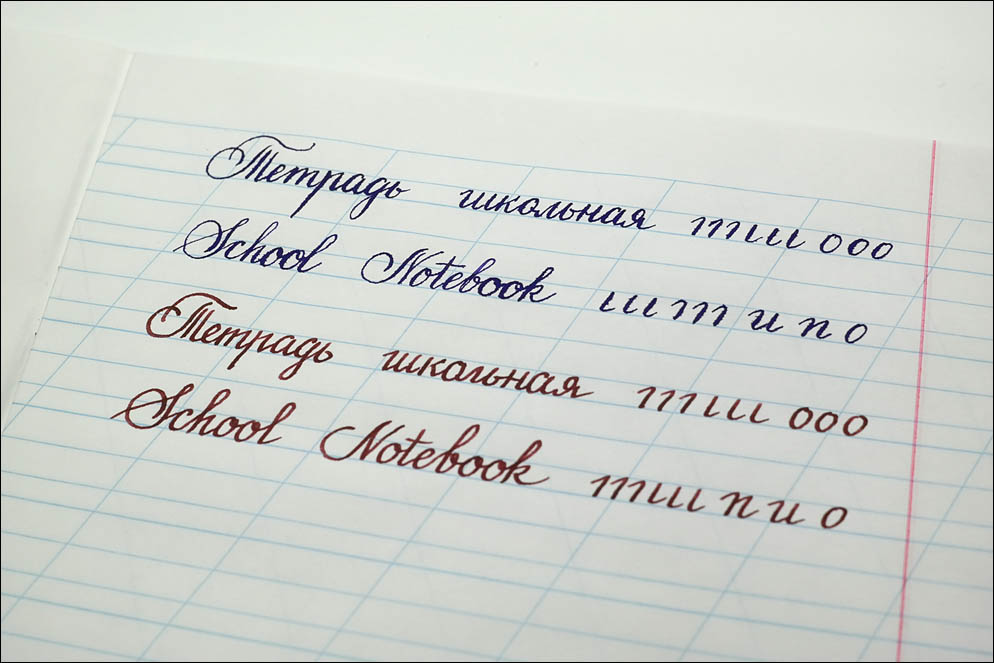 Тетрадь школьная тш ооо
School Notebook шт и п о
Тетрадь школьная тш ооо
School Notebook тш п и о